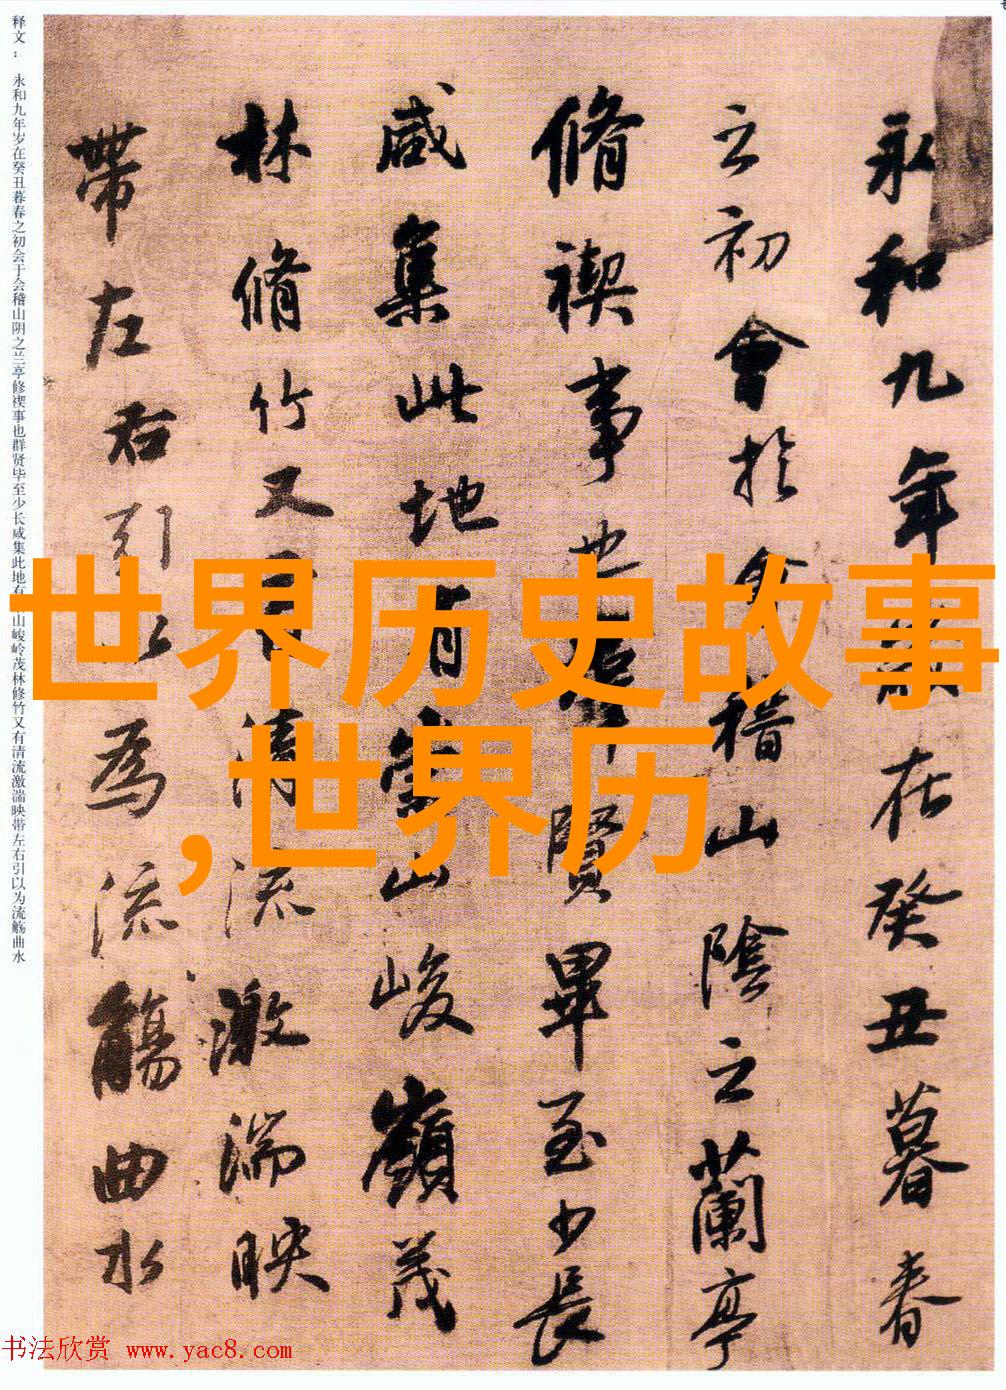 释文： 永和九年岁在癸丑暮春之初会于会稽山阴之兰亭修禊事也群贤毕至少长咸集此地有山峻岭茂林修竹又有清流激湍映带左右引以为流觞曲水
永和九年歲在癸丑暮春
之初會於會稽山陰之蘭亭
脩禊事也群賢畢至少長
咸集此地有崇山峻嶺茂
林脩竹又有清流激湍映
帶左右引以為流觴曲水
世界历史故事
,世界历
书法欣赏 www.yac8.com